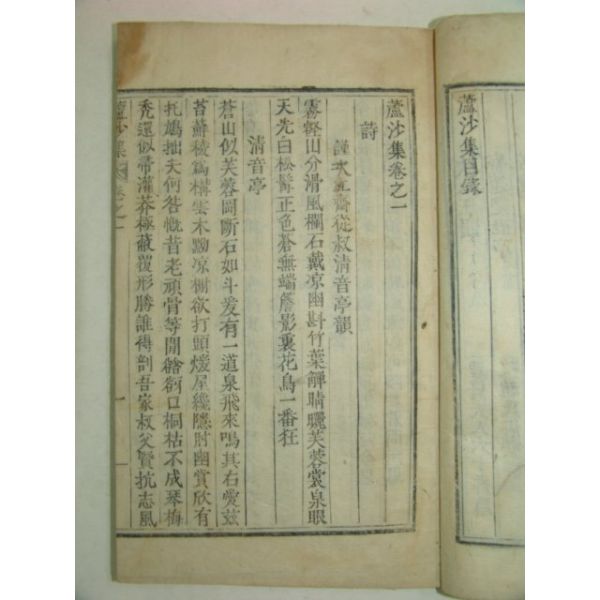 蘆沙集目錄
蘆沙集卷之一
詩
謹次立齋從叔清音亭韻
雾壑山分滑風欄石戴凉幽斟竹葉觶晴曬芙蓉裳泉眼
天先白松髯正色蒼無端簷影裏花鳥一番狂
清音亭
蒼山似芙蓉岡斷石如斗爰有一道泉飛來鳴其右愛玆
苔蘚稜爲構雲木黝凉榭欲打頭煖屋纔隱肘幽賞欣有
托鳩拙夫何咎慨昔老頑骨等閒谽谺口桐枯不成琴梅
禿還似帚灌莽極蔽覆形勝誰得剖吾家叔父賢抗志風
蘆沙集 卷之一
一